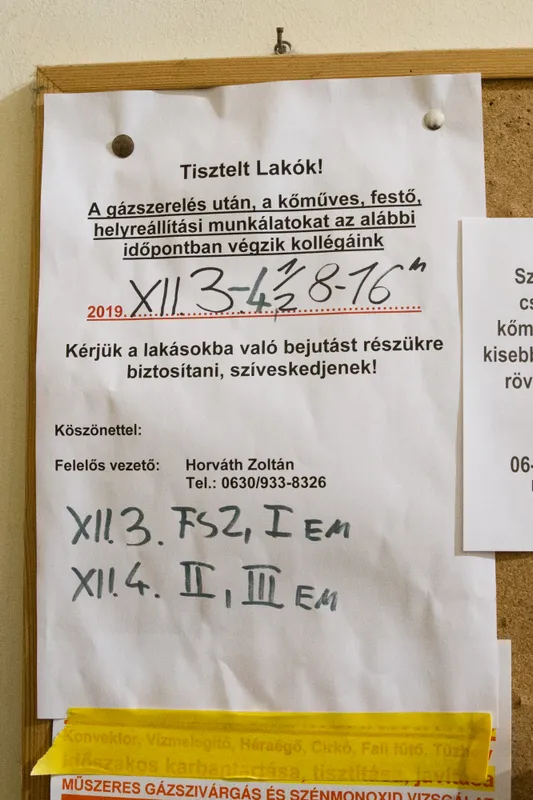 Tisztelt Lakók!
A gázszerelés után, a kőműves, festő,
helyreállítási munkálatokat az alábbi
időpontban végzik kollégáink
2019. XII. 3-4 1/2 8-16 h
Kérjük a lakásokba való bejutást részükre
biztosítani, szíveskedjenek!
Köszönettel:
Felelős vezető: Horváth Zoltán
Tel.: 0630/933-8326
XII.3. FSZ, I EM
XII.4. II, III EM
Sz
cs
kőm
kisebb
röv
06-
Konvektor, Vízmelegítő, Héraégő, Cirkó, Fali fűtő, Tűzhe
időszakos karbantartása, tisztítása, javítása
MŰSZERES GÁZSZIVÁRGÁS ÉS SZÉNMONOXID VIZSGÁ